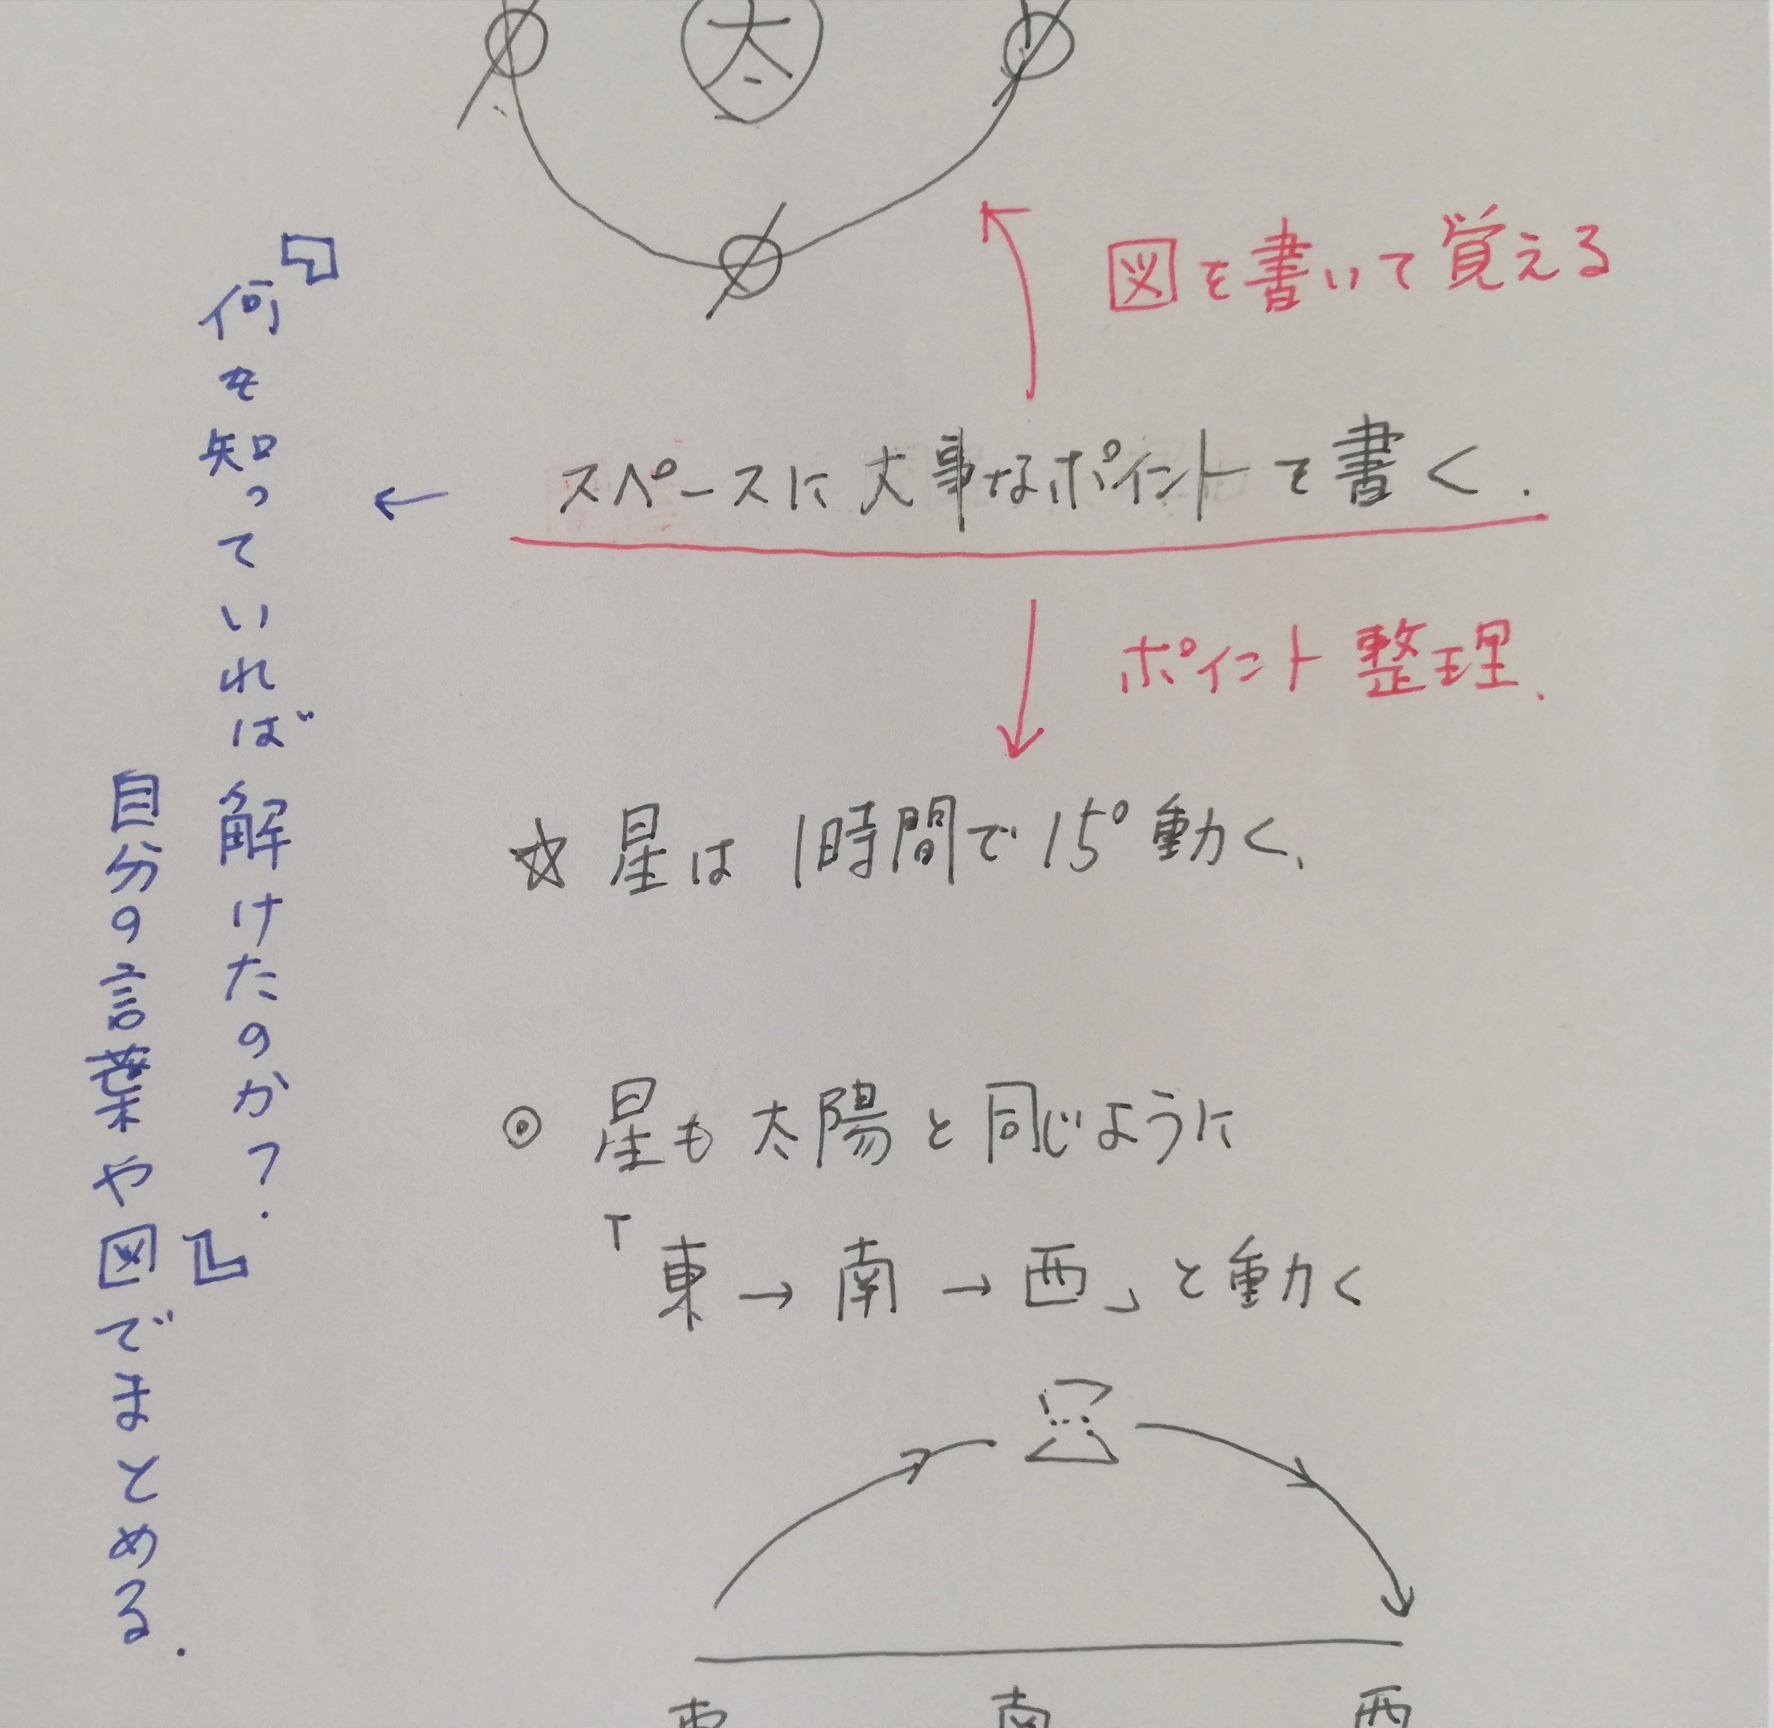 太
図を書いて覚える
スペースに大事なポイントを書く.
ポイント整理.
☆ 星は1時間で15°動く.
◎ 星も太陽と同じように
「東→南→西」と動く
東 南 西
『何を知っていれば解けたのか?.』
自分の言葉や図でまとめる.